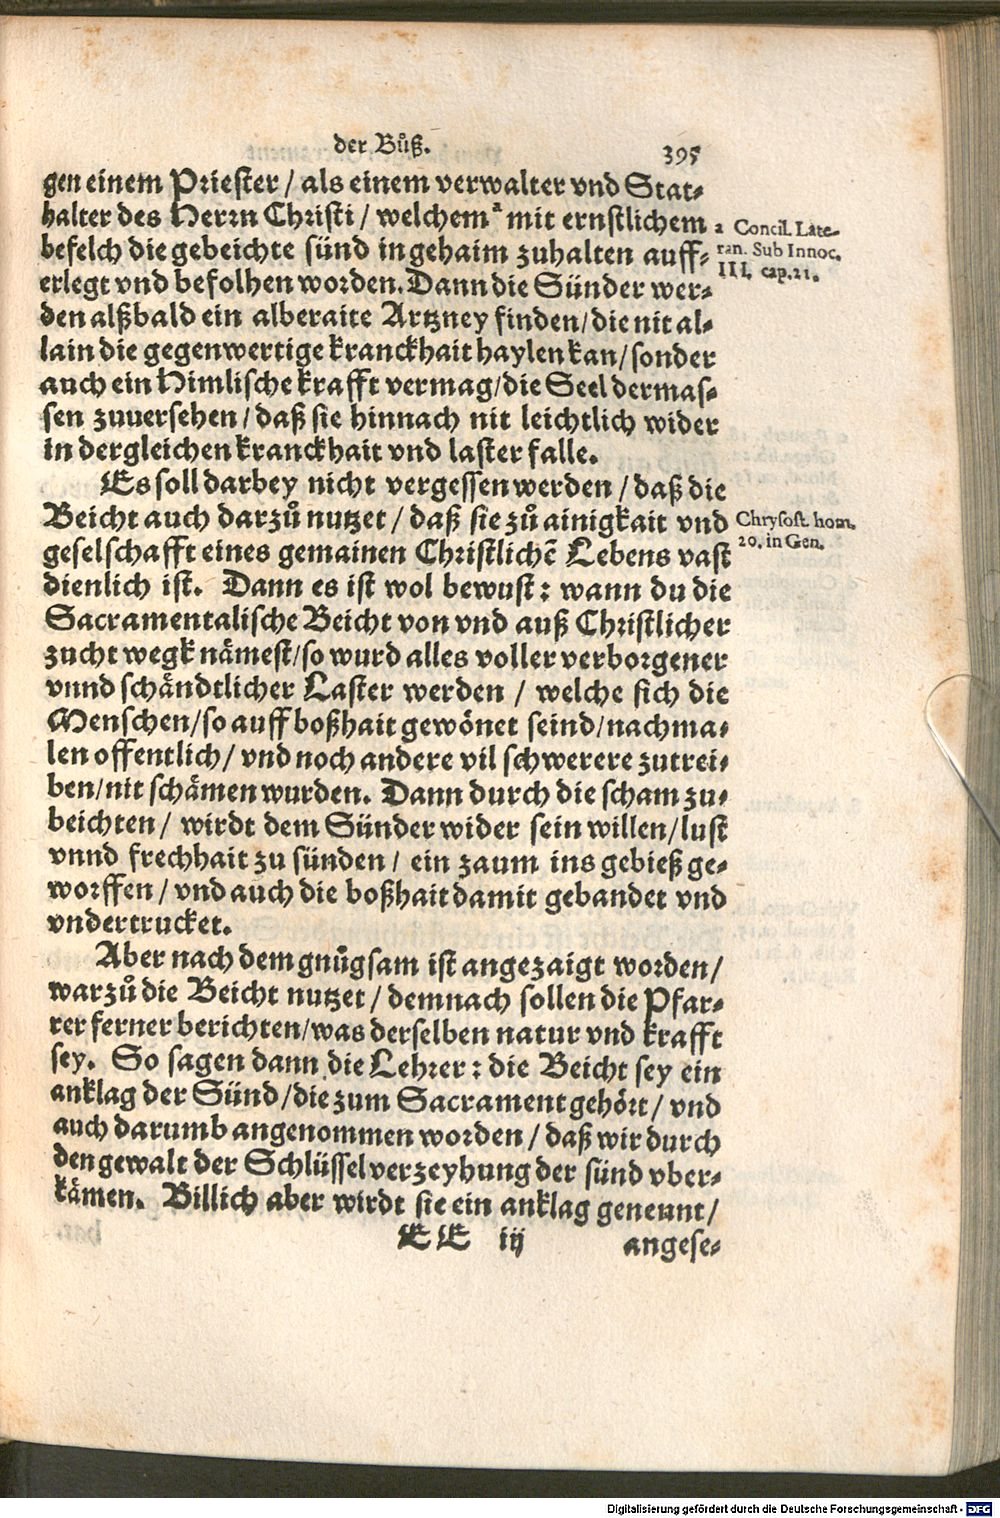 der Bůß.
395
gen einem Priester / als einem verwalter vnd Stat-
halter des Herrn Christi / welchem ᵃ mit ernstlichem
befelch die gebeichte sünd in gehaim zuhalten auff-
erlegt vnd befolhen worden. Dann die Sünder wer-
den alßbald ein alberaite Artzney finden / die nit al-
lain die gegenwertige kranckhait haylen kan / sonder
auch ein Himlische krafft vermag / die Seel dermas-
sen zuuersehen / daß sie hinnach nit leichtlich wider
in dergleichen kranckhait vnd laster falle.
a Concil. Late-
ran. Sub Innoc.
III. cap. 21.
Es soll darbey nicht vergessen werden / daß die
Beicht auch darzů nutzet / daß sie zů ainigkait vnd
geselschafft eines gemainen Christlichẽ Lebens vast
dienlich ist. Dann es ist wol bewust: wann du die
Sacramentalische Beicht von vnd auß Christlicher
zucht wegk nämest / so wurd alles voller verborgener
vnnd schändtlicher Laster werden / welche sich die
Menschen / so auff boßhait gewönet seind / nachma-
len offentlich / vnd noch andere vil schwerere zutrei-
ben / nit schämen wurden. Dann durch die scham zu-
beichten / wirdt dem Sünder wider sein willen / lust
vnnd frechhait zu sünden / ein zaum ins gebieß ge-
worffen / vnd auch die boßhait damit gebandet vnd
vndertrucket.
Chrysost. hom.
20. in Gen.
Aber nach dem gnůgsam ist angezaigt worden /
warzů die Beicht nutzet / demnach sollen die Pfar-
rer ferner berichten / was derselben natur vnd krafft
sey. So sagen dann die Lehrer: die Beicht sey ein
anklag der Sünd / die zum Sacrament gehört / vnd
auch darumb angenommen worden / daß wir durch
den gewalt der Schlüssel verzeyhung der sünd vber-
kämen. Billich aber wirdt sie ein anklag genennt /
EE iij
angese-
Digitalisierung gefördert durch die Deutsche Forschungsgemeinschaft - DFG